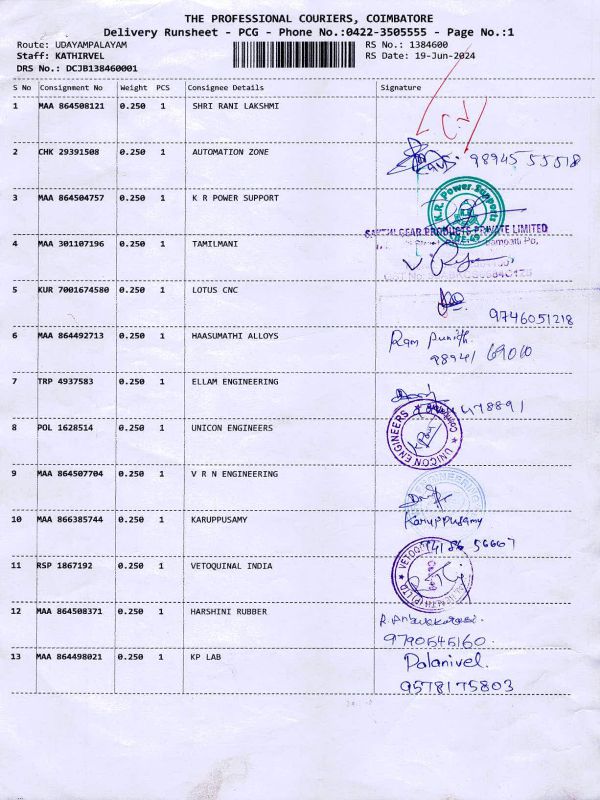 THE PROFESSIONAL COURIERS, COIMBATORE
Delivery Runsheet - PCG - Phone No.:0422-3505555 - Page No.:1
Route: UDAYAMPALAYAM RS No.: 1384600
Staff: KATHIRVEL RS Date: 19-Jun-2024
DRS No.: DCJB138460001
S No Consignment No Weight PCS Consignee Details Signature
1 MAA 864508121 0.250 1 SHRI RANI LAKSHMI
2 CHK 29391508 0.250 1 AUTOMATION ZONE 98945 55518
3 MAA 864504757 0.250 1 K R POWER SUPPORT
K.R. Power Supports
PRODUCTS PRIVATE LIMITED
4 MAA 301107196 0.250 1 TAMILMANI
5 KUR 7001674580 0.250 1 LOTUS CNC
9746051218
6 MAA 864492713 0.250 1 HAASUMATHI ALLOYS Ram Punith
98941 69010
7 TRP 4937583 0.250 1 ELLAM ENGINEERING
478891
8 POL 1628514 0.250 1 UNICON ENGINEERS
UNICON ENGINEERS
9 MAA 864507704 0.250 1 V R N ENGINEERING
10 MAA 866385744 0.250 1 KARUPPUSAMY Karuppusamy
56667
11 RSP 1867192 0.250 1 VETOQUINAL INDIA
12 MAA 864508371 0.250 1 HARSHINI RUBBER
9790545160
13 MAA 864498021 0.250 1 KP LAB Palanivel.
9578175803